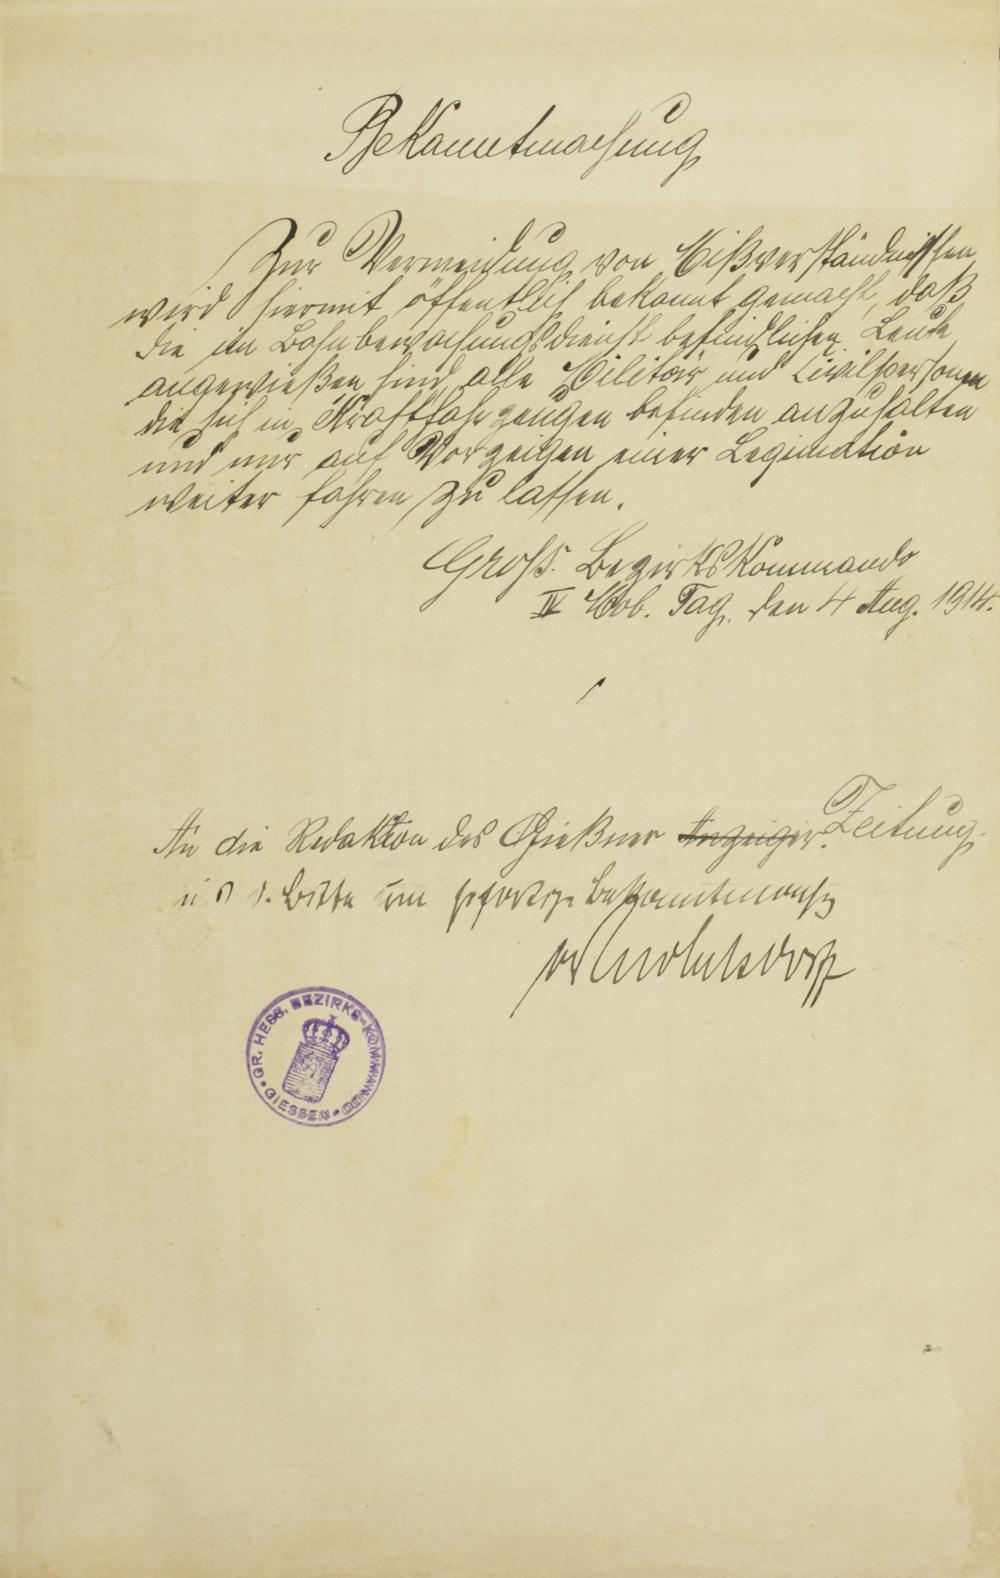 Bekanntmachung
Zur Vermeidung von Mißverständnissen
wird hiermit öffentlich bekannt gemacht, daß
die im Bahnbewachungsdienst befindlichen Leute
angewießen sind, alle Militär und Civilpersonen
die sich in Kraftfahrzeugen befinden anzuhalten
und nur auf Vorzeigen einer Legimation
weiter fahren zu lassen.
Groß. Bezirkskommando
IV Mob. Tag, den 4 Aug. 1914.
An die Redaktion des Gießner Anzeiger. Zeitung.
m. d. Bitte um sofortige Bekanntmachg
GR. HESS. BEZIRKS-KOMMANDO • GIESSEN •